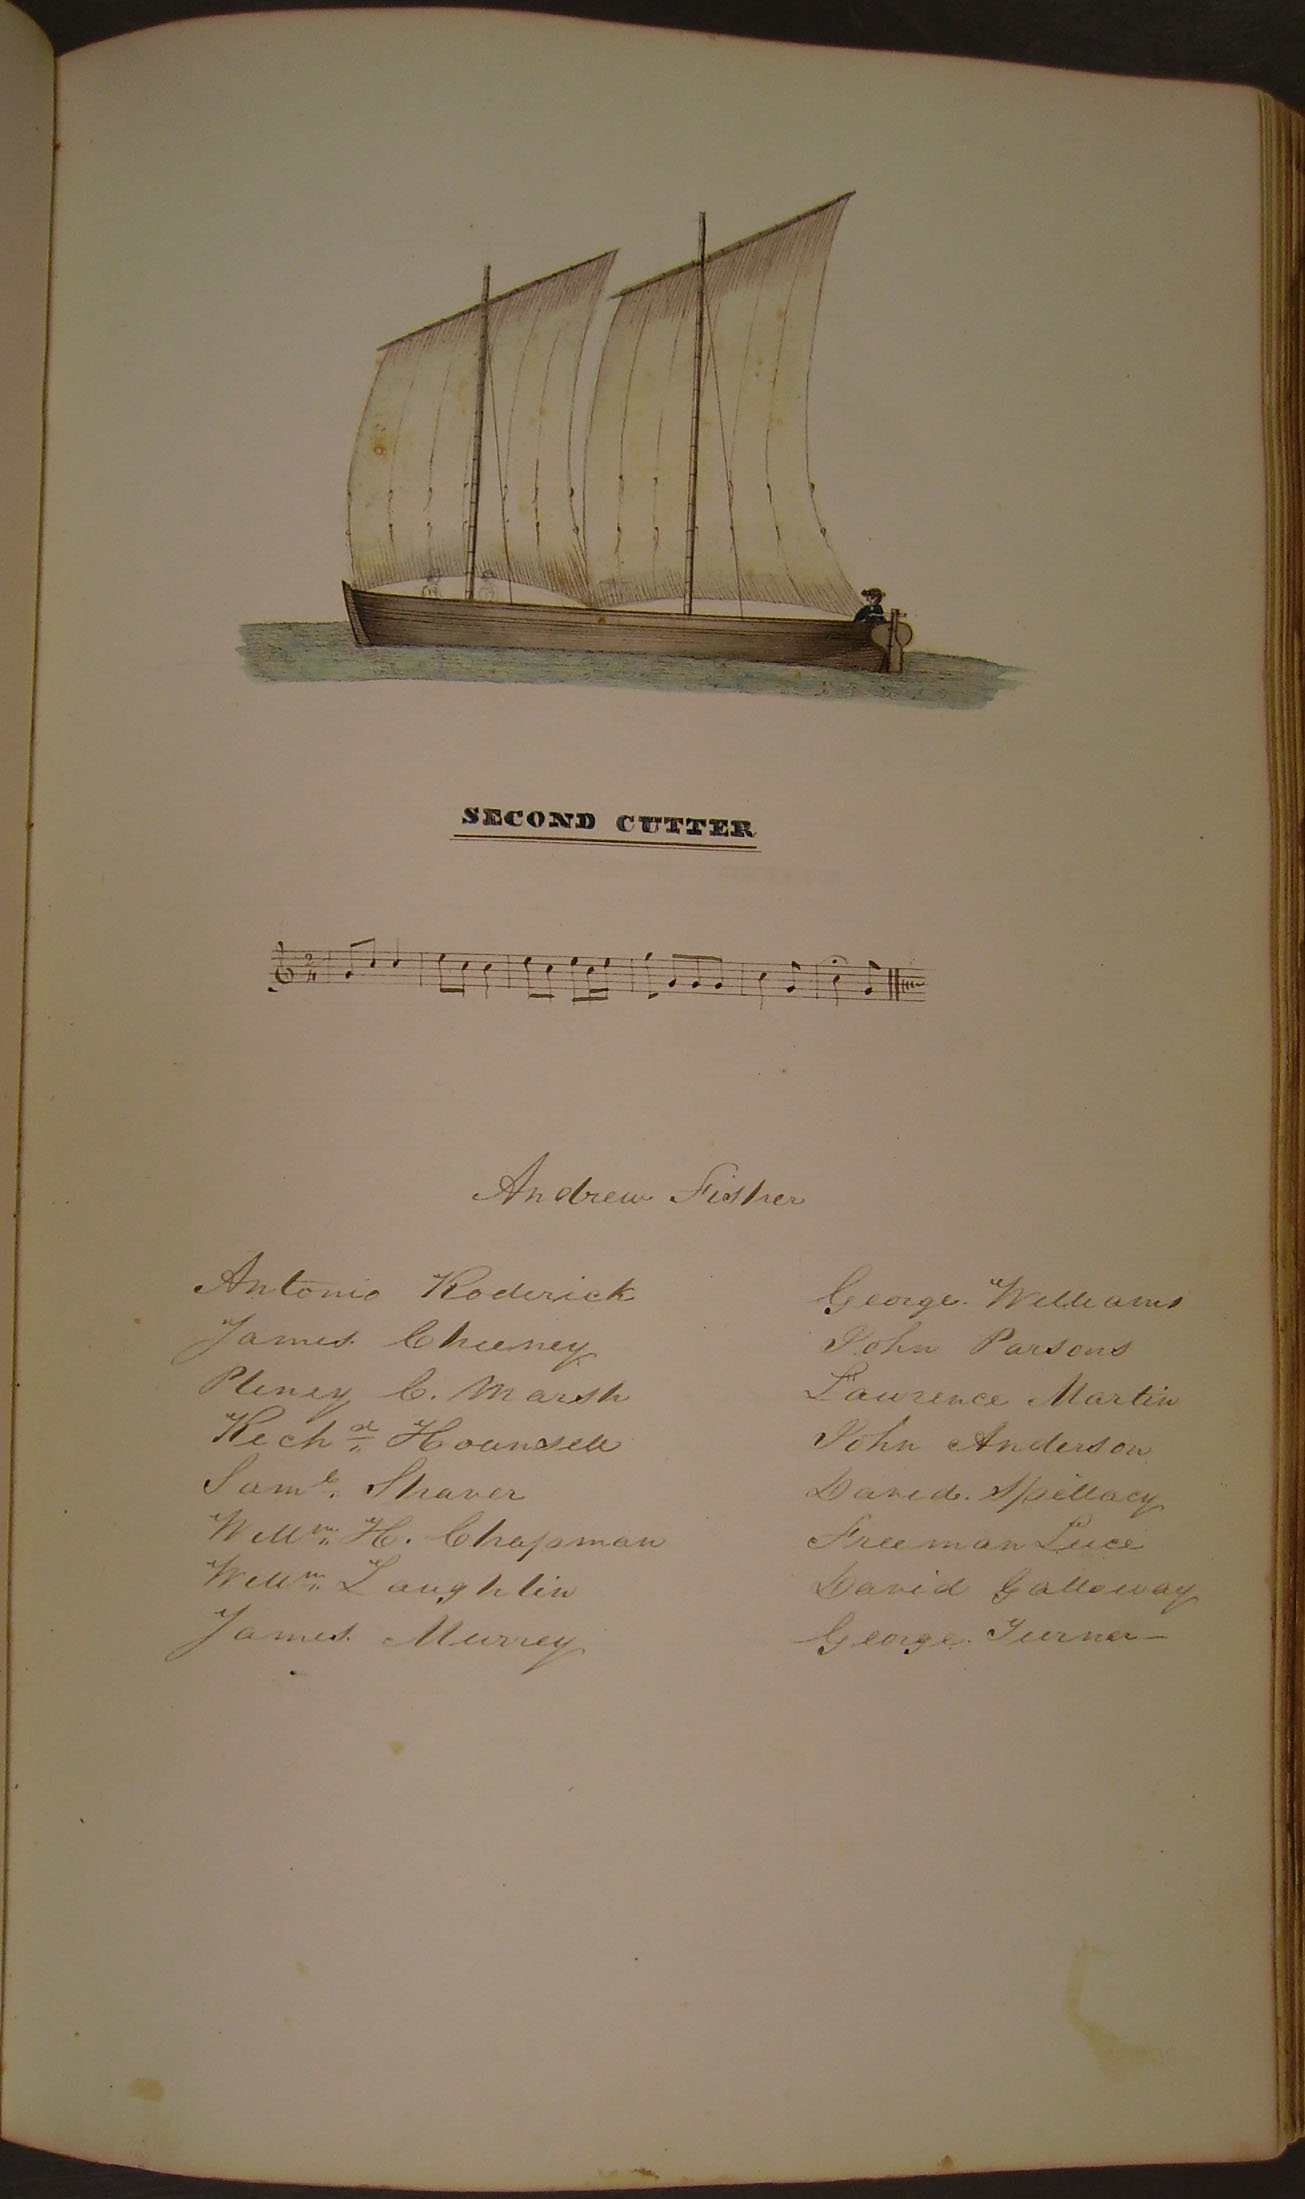 SECOND CUTTER
2/4
Andrew Fisher
Antonio Roderick
James Cheeney
Pliney C. Marsh
Rich.d Hounsell
Sam.l Shaver
Will.m H. Chapman
Will.m Laughlin
James Murrey
George Williams
John Parsons
Lawrence Martin
John Anderson
David Spillacy
Freeman Luce
David Galloway
George Turner